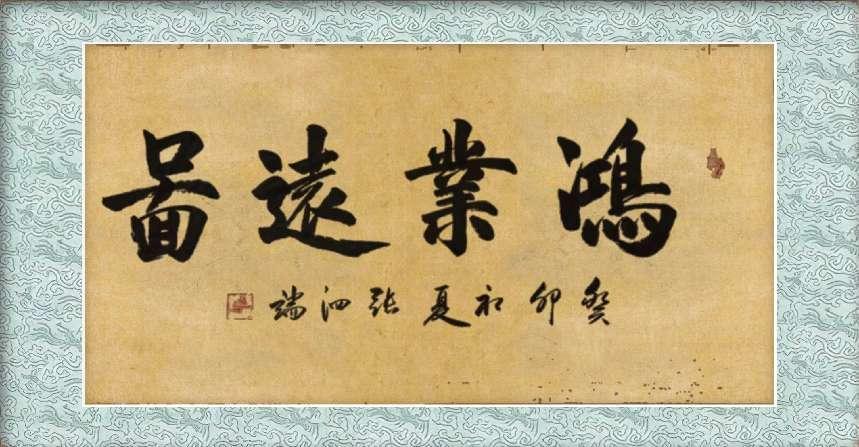 鴻業遠啚
癸卯初夏張泗端